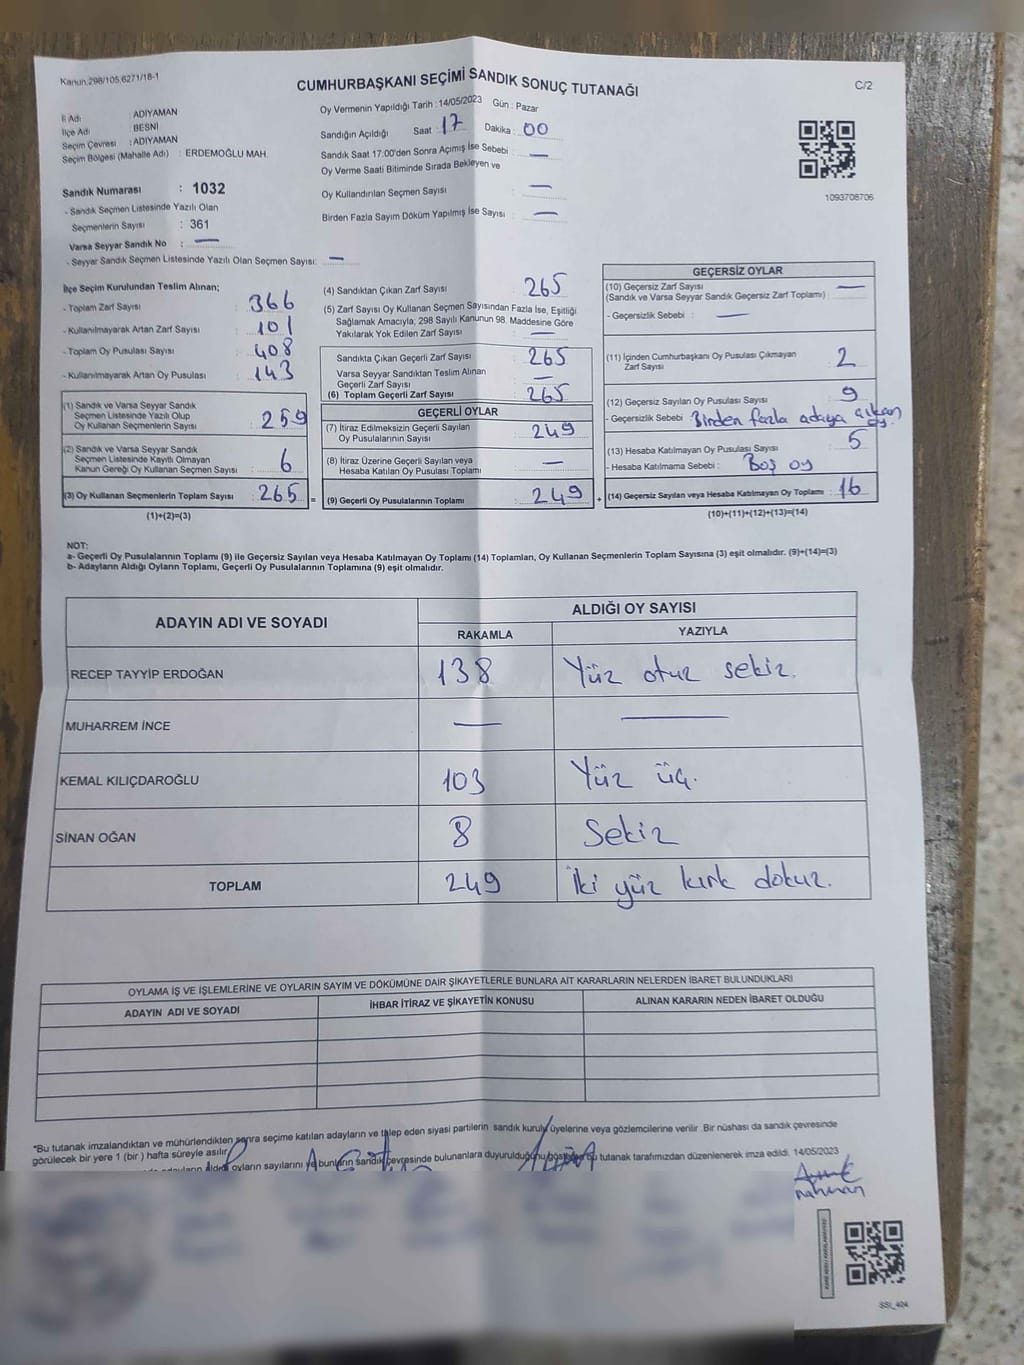 Kanun;298/105,6271/18-1
CUMHURBAŞKANI SEÇİMİ SANDIK SONUÇ TUTANAĞI
C/2
İl Adı : ADIYAMAN
İlçe Adı : BESNİ
Seçim Çevresi : ADIYAMAN
Seçim Bölgesi (Mahalle Adı) : ERDEMOĞLU MAH.
Sandık Numarası : 1032
- Sandık Seçmen Listesinde Yazılı Olan
Seçmenlerin Sayısı : 361
Varsa Seyyar Sandık No : —
- Seyyar Sandık Seçmen Listesinde Yazılı Olan Seçmen Sayısı: —
Oy Vermenin Yapıldığı Tarih : 14/05/2023 Gün : Pazar
Sandığın Açıldığı Saat : 17 Dakika : 00
Sandık Saat 17:00'den Sonra Açılmış İse Sebebi : —
Oy Verme Saati Bitiminde Sırada Bekleyen ve
Oy Kullandırılan Seçmen Sayısı : —
Birden Fazla Sayım Döküm Yapılmış İse Sayısı : —
1093708706
İlçe Seçim Kurulundan Teslim Alınan;
- Toplam Zarf Sayısı : 366
- Kullanılmayarak Artan Zarf Sayısı : 101
- Toplam Oy Pusulası Sayısı : 408
- Kullanılmayarak Artan Oy Pusulası : 143
(1) Sandık ve Varsa Seyyar Sandık
Seçmen Listesinde Yazılı Olup
Oy Kullanan Seçmenlerin Sayısı : 259
(2) Sandık ve Varsa Seyyar Sandık
Seçmen Listesinde Kayıtlı Olmayan
Kanun Gereği Oy Kullanan Seçmen Sayısı : 6
(3) Oy Kullanan Seçmenlerin Toplam Sayısı : 265 =
(1)+(2)=(3)
(4) Sandıktan Çıkan Zarf Sayısı : 265
(5) Zarf Sayısı Oy Kullanan Seçmen Sayısından Fazla İse, Eşitliği
Sağlamak Amacıyla; 298 Sayılı Kanunun 98. Maddesine Göre
Yakılarak Yok Edilen Zarf Sayısı : —
Sandıkta Çıkan Geçerli Zarf Sayısı : 265
Varsa Seyyar Sandıktan Teslim Alınan
Geçerli Zarf Sayısı : —
(6) Toplam Geçerli Zarf Sayısı : 265
GEÇERLİ OYLAR
(7) İtiraz Edilmeksizin Geçerli Sayılan
Oy Pusulalarının Sayısı : 249
(8) İtiraz Üzerine Geçerli Sayılan veya
Hesaba Katılan Oy Pusulası Toplamı : —
(9) Geçerli Oy Pusulalarının Toplamı : 249 +
GEÇERSİZ OYLAR
(10) Geçersiz Zarf Sayısı
(Sandık ve Varsa Seyyar Sandık Geçersiz Zarf Toplamı) : —
- Geçersizlik Sebebi : —
(11) İçinden Cumhurbaşkanı Oy Pusulası Çıkmayan
Zarf Sayısı : 2
(12) Geçersiz Sayılan Oy Pusulası Sayısı : 9
- Geçersizlik Sebebi : Birden fazla adaya çıkan oy.
(13) Hesaba Katılmayan Oy Pusulası Sayısı : 5
- Hesaba Katılmama Sebebi : Boş oy
(14) Geçersiz Sayılan veya Hesaba Katılmayan Oy Toplamı : 16
(10)+(11)+(12)+(13)=(14)
NOT:
a- Geçerli Oy Pusulalarının Toplamı (9) ile Geçersiz Sayılan veya Hesaba Katılmayan Oy Toplamı (14) Toplamları, Oy Kullanan Seçmenlerin Toplam Sayısına (3) eşit olmalıdır. (9)+(14)=(3)
b- Adayların Aldığı Oyların Toplamı, Geçerli Oy Pusulalarının Toplamına (9) eşit olmalıdır.
ADAYIN ADI VE SOYADI
ALDIĞI OY SAYISI
RAKAMLA YAZIYLA
RECEP TAYYİP ERDOĞAN 138 Yüz otuz sekiz.
MUHARREM İNCE — —
KEMAL KILIÇDAROĞLU 103 Yüz üç.
SİNAN OĞAN 8 Sekiz
TOPLAM 249 İki yüz kırk dokuz.
OYLAMA İŞ VE İŞLEMLERİNE VE OYLARIN SAYIM VE DÖKÜMÜNE DAİR ŞİKAYETLERLE BUNLARA AİT KARARLARIN NELERDEN İBARET BULUNDUKLARI
ADAYIN ADI VE SOYADI İHBAR İTİRAZ VE ŞİKAYETİN KONUSU ALINAN KARARIN NEDEN İBARET OLDUĞU
*Bu tutanak imzalandıktan ve mühürlendikten sonra seçime katılan adayların ve talep eden siyasi partilerin sandık kurulu üyelerine veya gözlemcilerine verilir. Bir nüshası da sandık çevresinde
görülecek bir yere 1 (bir ) hafta süreyle asılır.
oyların sayılarını ve bunların sandık çevresinde bulunanlara duyurulduğunu bu tutanak tarafımızdan düzenlenerek imza edildi. 14/05/2023
SSİ_404